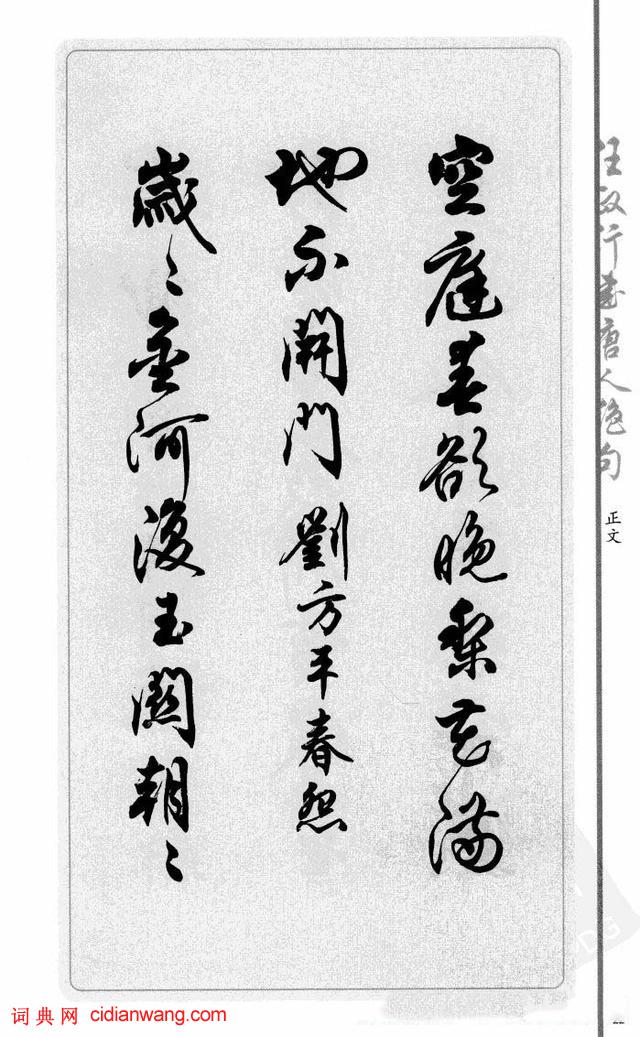 空庭春欲晚梨花滿
地不開門劉方平春怨
歲〻金河復玉關朝〻
汪政行書唐人絕句
正文
词典网 cidianwang.com